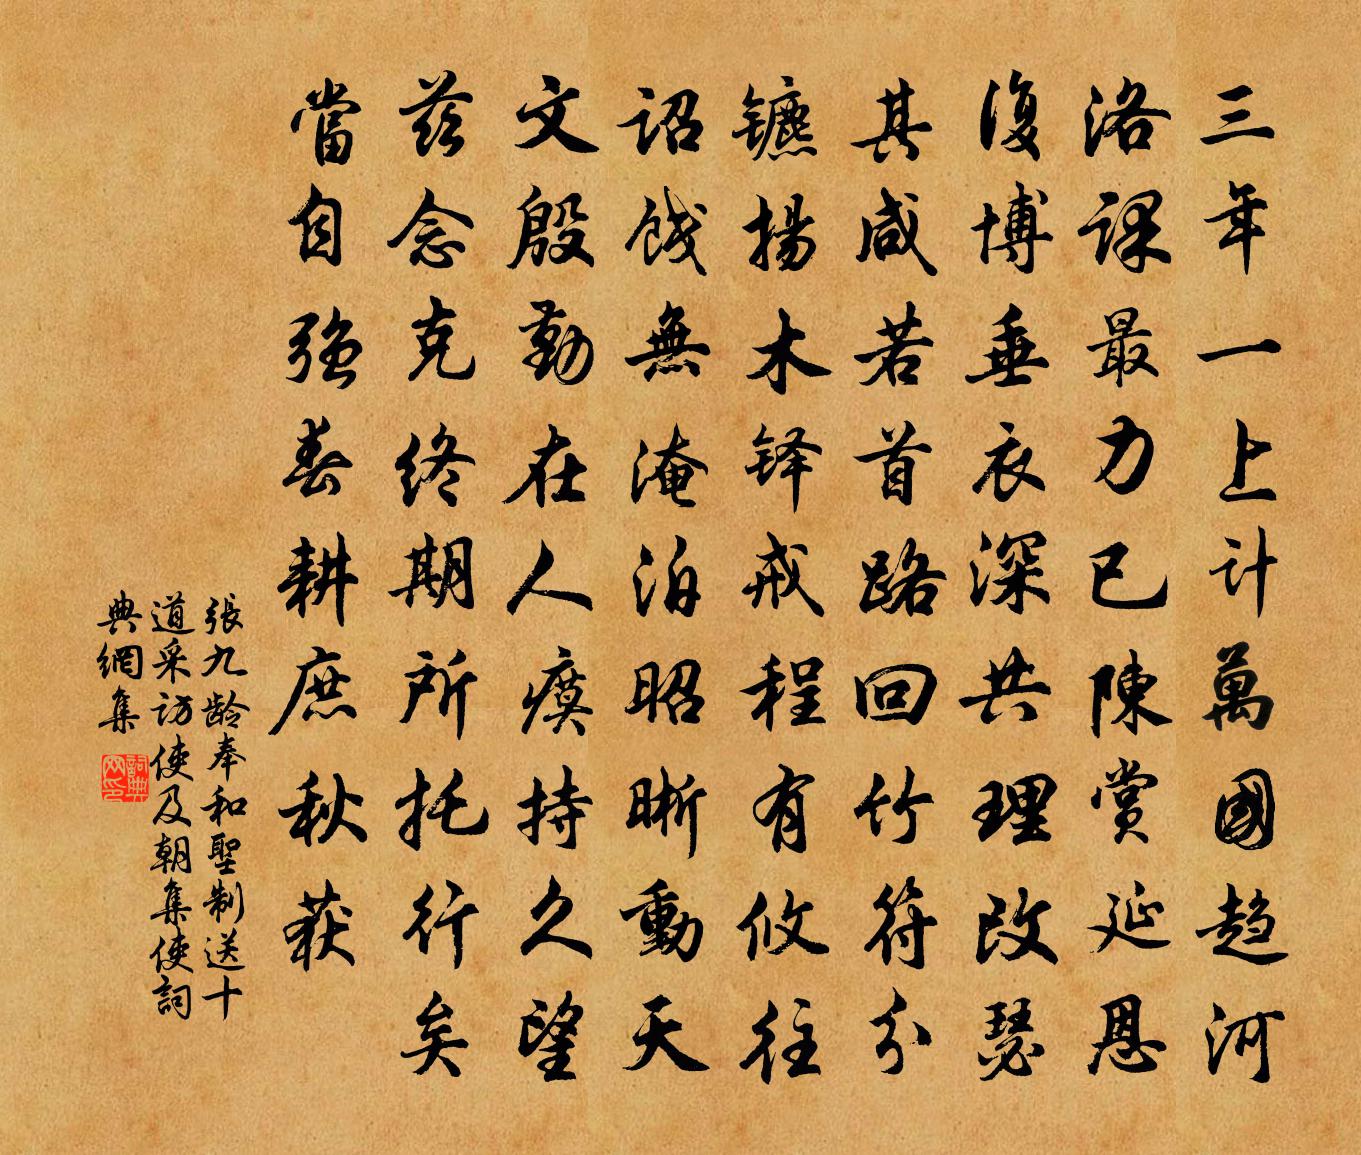 三年一上計萬國趋河
洛課最力已陳賞延恩
復博垂衣深共理改瑟
其咸若首路回竹符分
镳揚木铎戒程有攸往
詔餞無淹泊昭晰動天
文殷勤在人瘼持久望
兹念克终期所托行矣
當自强春耕庶秋获
張九龄奉和聖制送十
道采访使及朝集使詞
典網集
詞典网印